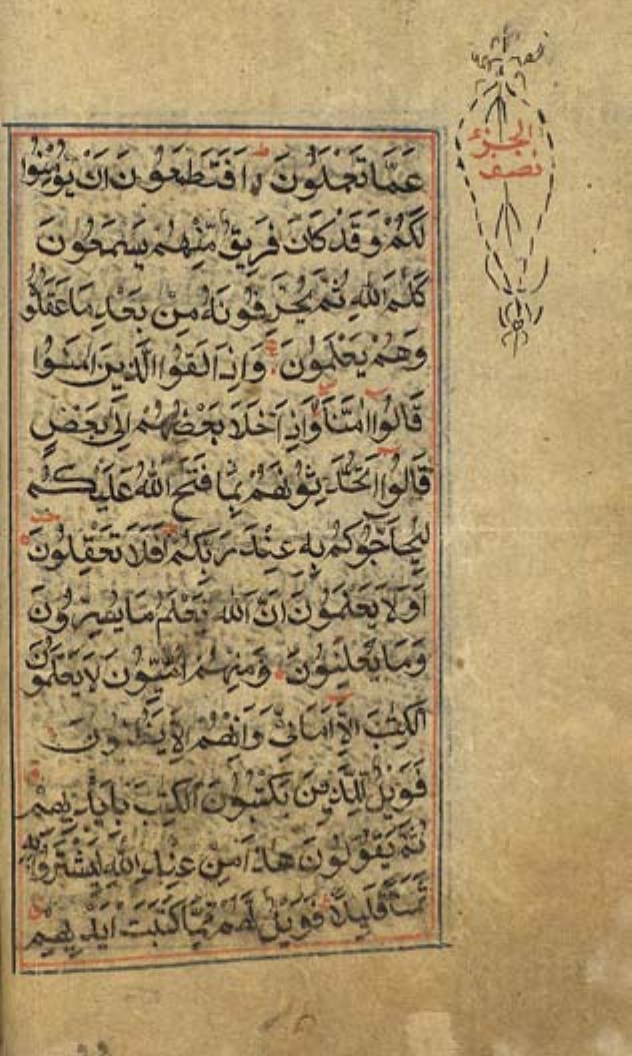 عَمَّا تَعْمَلُونَ اَفَتَطْمَعُونَ اَنْ يُؤْمِنُوا
لَكُمْ وَقَدْ كَانَ فَرِيقٌ مِّنْهُمْ يَسْمَعُونَ
كَلٰمَ اللهِ ثُمَّ يُحَرِّفُونَهُ مِنْ بَعْدِ مَا عَقَلُوهُ
وَهُمْ يَعْلَمُونَ وَاِذَا لَقُوا الَّذِينَ اٰمَنُوا
قَالُوا اٰمَنَّا وَاِذَا خَلَا بَعْضُهُمْ اِلٰى بَعْضٍ
قَالُوا اَتُحَدِّثُونَهُمْ بِمَا فَتَحَ اللهُ عَلَيْكُمْ
لِيُحَاجُّوكُمْ بِهِ عِنْدَ رَبِّكُمْ اَفَلَا تَعْقِلُونَ
اَوَلَا يَعْلَمُونَ اَنَّ اللهَ يَعْلَمُ مَا يُسِرُّونَ
وَمَا يُعْلِنُونَ وَمِنْهُمْ اُمِّيُّونَ لَا يَعْلَمُونَ
الْكِتٰبَ اِلَّا اَمَانِيَّ وَاِنْ هُمْ اِلَّا يَظُنُّونَ
فَوَيْلٌ لِلَّذِينَ يَكْتُبُونَ الْكِتٰبَ بِاَيْدِيهِمْ
ثُمَّ يَقُولُونَ هٰذَا مِنْ عِنْدِ اللهِ لِيَشْتَرُوا بِهِ
ثَمَنًا قَلِيلًا فَوَيْلٌ لَهُمْ مِمَّا كَتَبَتْ اَيْدِيهِمْ
الجزء
نصف